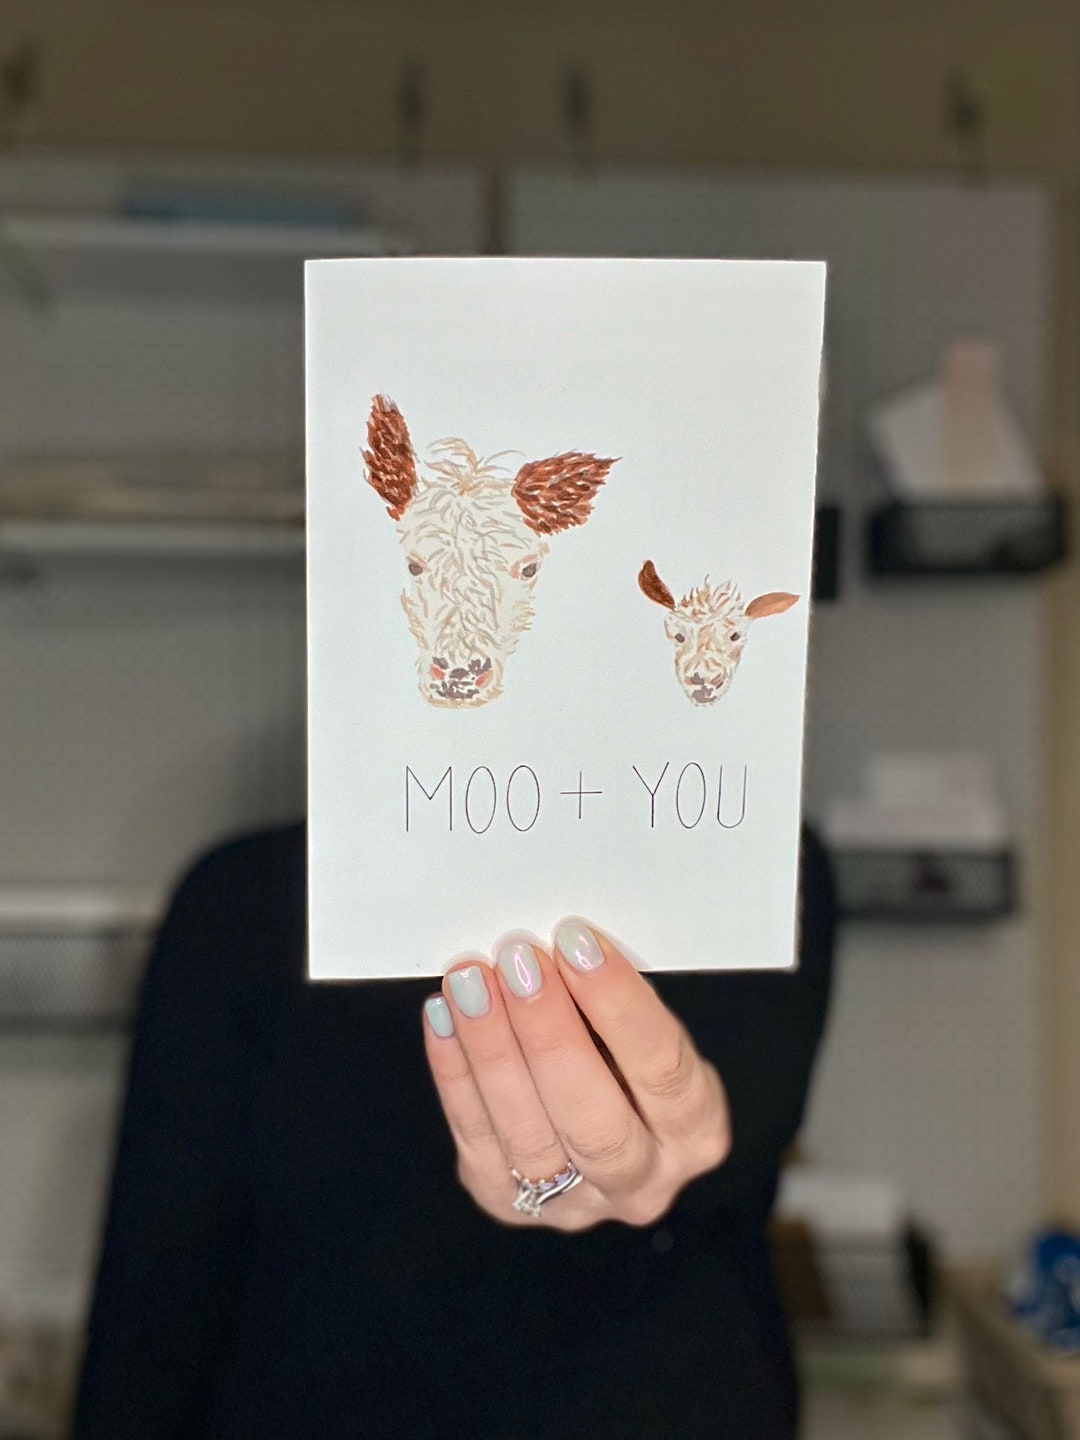 MOO + YOU